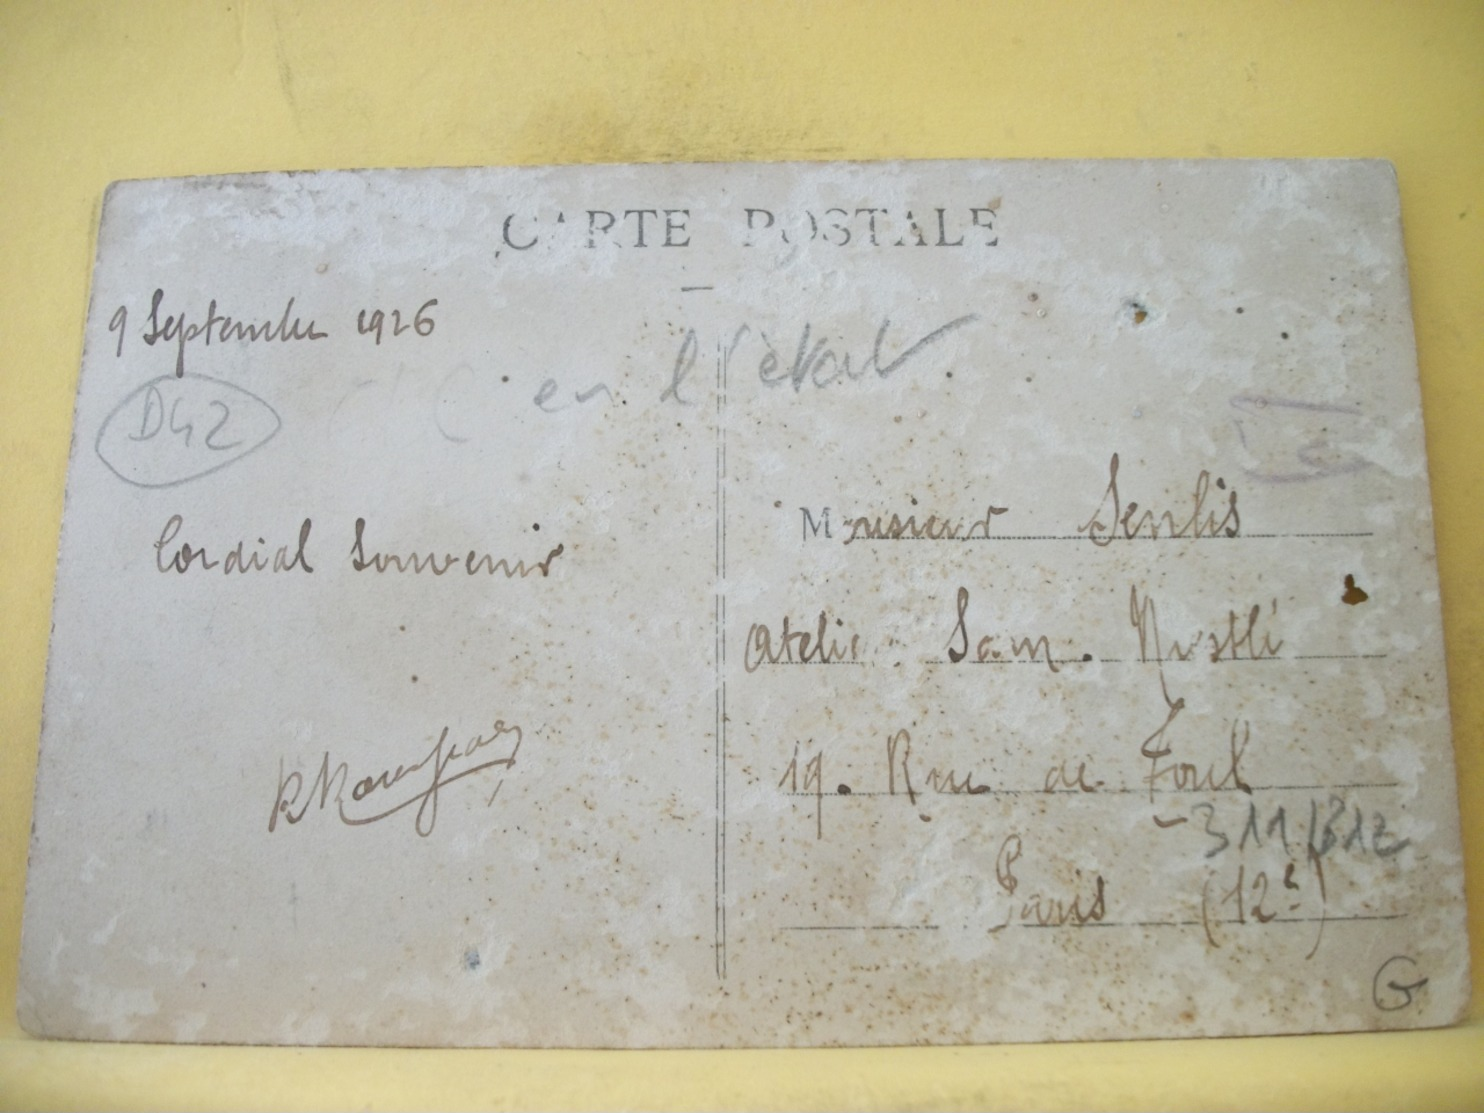 CARTE POSTALE
9 Septembre 1926
en l'état
D42
Monsieur Senlis
Cordial Souvenir
Atelier Sam.
19. Rue de Toul
311/312
Paris (12e)
G